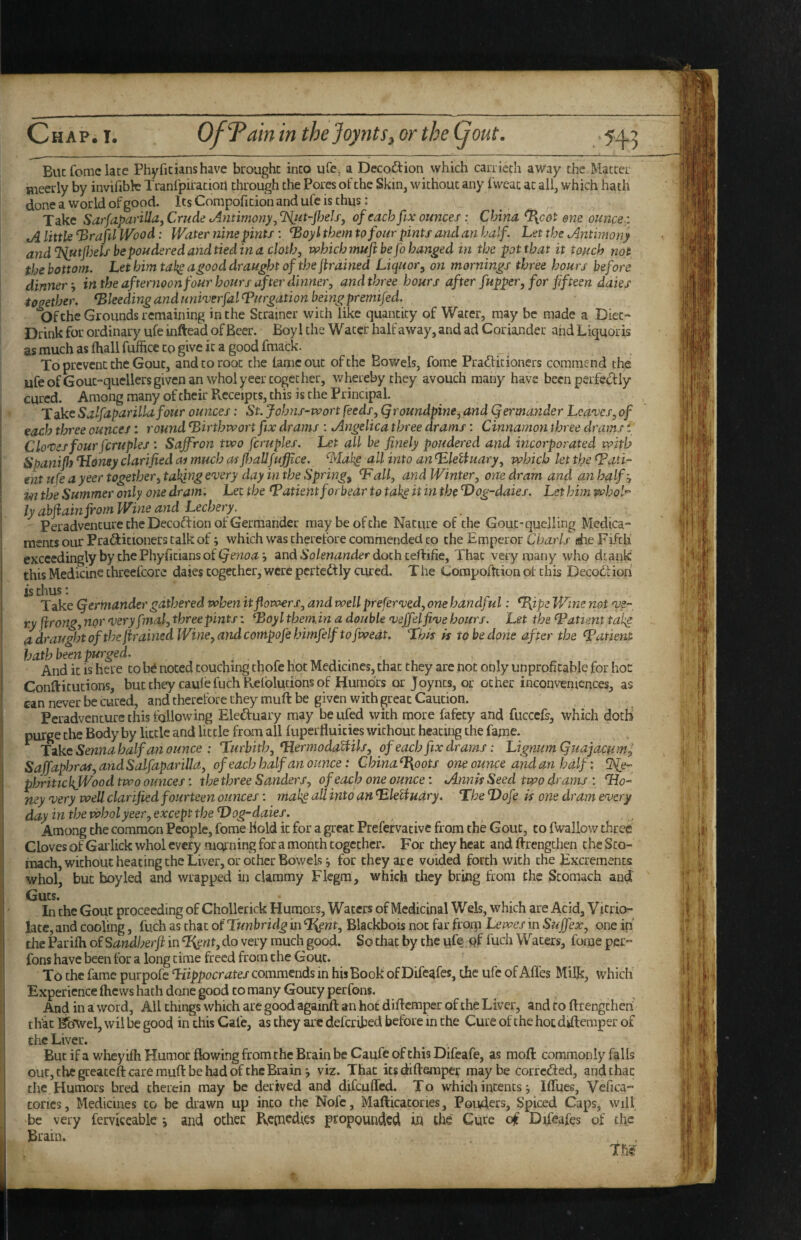 CHAP. I. Of Pain in the Joynts, or the Gout. 543
But ſome late Phyſitians have brought into uſe, a Decoction which carrieth away the Matter
meerly by inviſible Tranſpiration through the Pores of the Skin, without any ſweat at all, which hath
done a world of good. Its Compoſition and uſe is thus:
Take Sarſaparilla, Crude Antimony, Nut-ſhels, of each ſix ounces: China Root one ounce:
A little Braſil Wood: Water nine pints: Boyl them to four pints and an half. Let the Antimony
and Nutſhels be poudered and tied in a cloth, which muſt be ſo hanged in the pot that it touch not
the bottom. Let him take a good draught of the ſtrained Liquor, on mornings three hours before
dinner; in the afternoon four hours after dinner, and three hours after ſupper, for fifteen daies
together. Bleeding and univerſal Purgation being premiſed.
Of the Grounds remaining in the Strainer with like quantity of Water, may be made a Diet-
Drink for ordinary uſe inſtead of Beer. Boyl the Water half away, and ad Coriander and Liquoris
as much as ſhall ſuffice to give it a good ſmack.
To prevent the Gout, and to root the ſame out of the Bowels, ſome Practitioners commend the
uſe of Gout-quellers given an whol yeer together, whereby they avouch many have been perfectly
cured. Among many of their Receipts, this is the Principal.
Take Salſaparilla four ounces: St. Johns-wort ſeeds, Groundpine, and Germander Leaves, of
each three ounces: round Birthwort ſix drams: Angelica three drams: Cinnamon three drams:
Cloves four ſcruples: Saffron two ſcruples. Let all be finely poudered and incorporated with
Spaniſh Honey clarified as much as ſhall ſuffice. Make all into an Electuary, which let the Pati-
ent uſe a yeer together, taking every day in the Spring, Fall, and Winter, one dram and an half;
in the Summer only one dram. Let the Patient forbear to take it in the Dog-daies. Let him whol-
ly abſtain from Wine and Lechery.
Peradventure the Decoction of Germander may be of the Nature of the Gout-quelling Medica-
ments our Practitioners talk of; which was therefore commended to the Emperor Charls the Fifth
exceedingly by the Phyſitians of Genoa; and Solenander doth teſtifie, That very many who drank
this Medicine threeſcore daies together, were perfectly cured. The Compoſition of this Decoction
is thus:
Take Germander gathered when it flowers, and well preſerved, one handful: Ripe Wine not ve-
ry ſtrong, nor very ſmal, three pints: Boyl them in a double veſſel five hours. Let the Patient take
a draught of the ſtrained Wine, and compoſe himſelf to ſweat. This is to be done after the Patient
hath been purged.
And it is here to be noted touching thoſe hot Medicines, that they are not only unprofitable for hot
Conſtitutions, but they cauſe ſuch Reſolutions of Humors or Joynts, or other inconveniences, as
can never be cured, and therefore they muſt be given with great Caution.
Peradventure this following Electuary may be uſed with more ſafety and ſucceſs, which doth
purge the Body by little and little from all ſuperfluities without heating the ſame.
Take Senna half an ounce: Turbith, Hermodactils, of each ſix drams: Lignum Guajacum,
Saſſaphras, and Salſaparilla, of each half an ounce: China Roots one ounce and an half: Ne-
phritick Wood two ounces: the three Sanders, of each one ounce: Annis Seed two drams: Ho-
ney very well clarified fourteen ounces: make all into an Electuary. The Doſe is one dram every
day in the whol yeer, except the Dog-daies.
Among the common People, ſome Hold it for a great Preſervative from the Gout, to ſwallow three
Cloves of Garlick whol every morning for a month together. For they heat and ſtrengthen the Sto-
mach, without heating the Liver, or other Bowels; for they are voided forth with the Excrements
whol, but boyled and wrapped in clammy Flegm, which they bring from the Stomach and
Guts.
In the Gout proceeding of Chollerick Humors, Waters of Medicinal Wels, which are Acid, Vitrio-
late, and cooling, ſuch as that of Tunbridg in Kent, Blackbois not far from Lewes in Suſſex, one in
the Pariſh of Sandherſt in Kent, do very much good. So that by the uſe of ſuch Waters, ſome per-
ſons have been for a long time freed from the Gout.
To the ſame purpoſe Hippocrates commends in his Book of Diſeaſes, the uſe of Aſſes Milk, which
Experience ſhews hath done good to many Gouty perſons.
And in a word, All things which are good againſt an hot diſtemper of the Liver, and to ſtrengthen
that Bowel, wil be good in this Caſe, as they are deſcribed before in the Cure of the hot diſtemper of
the Liver.
But if a wheyiſh Humor flowing from the Brain be Cauſe of this Diſeaſe, as moſt commonly falls
out, the greateſt care muſt be had of the Brain; viz. That its diſtemper may be corrected, and that
the Humors bred therein may be derived and diſcuſſed. To which intents; Iſſues, Veſica-
tories, Medicines to be drawn up into the Noſe, Maſticatories, Pouders, Spiced Caps, will
be very ſerviceable; and other Remedies propounded in the Cure of Diſeaſes of the
Brain.
The